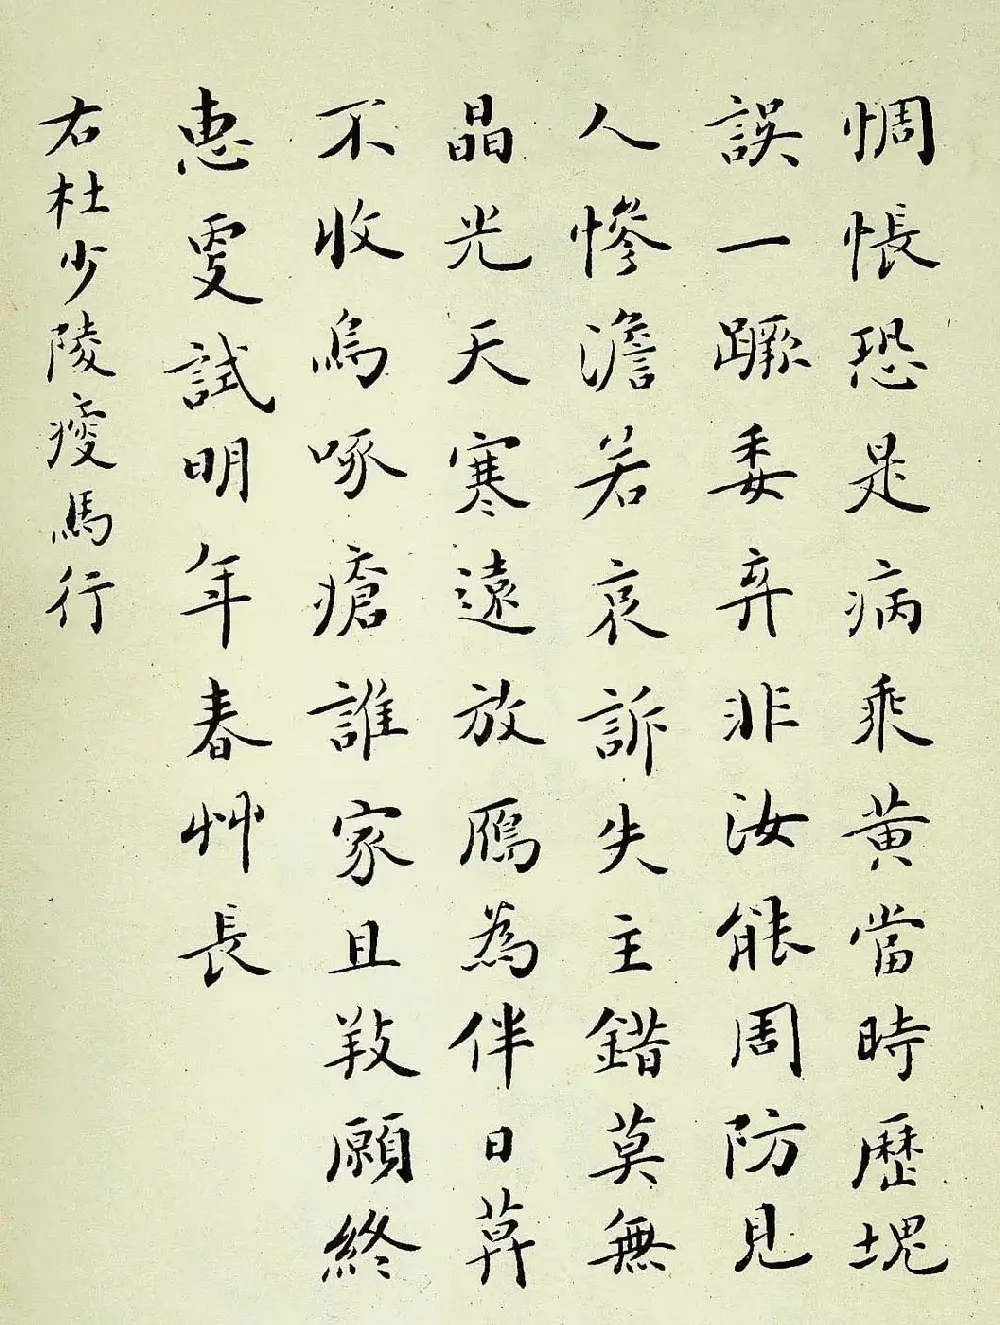 惆悵恐是病乘黄當時歷塊
誤一蹶委弃非汝能周防見
人慘澹若哀訴失主錯莫無
晶光天寒遠放鴈為伴日莫
不收烏啄瘡誰家且𢼝願終
惠更試明年春艸長
右杜少陵瘦馬行